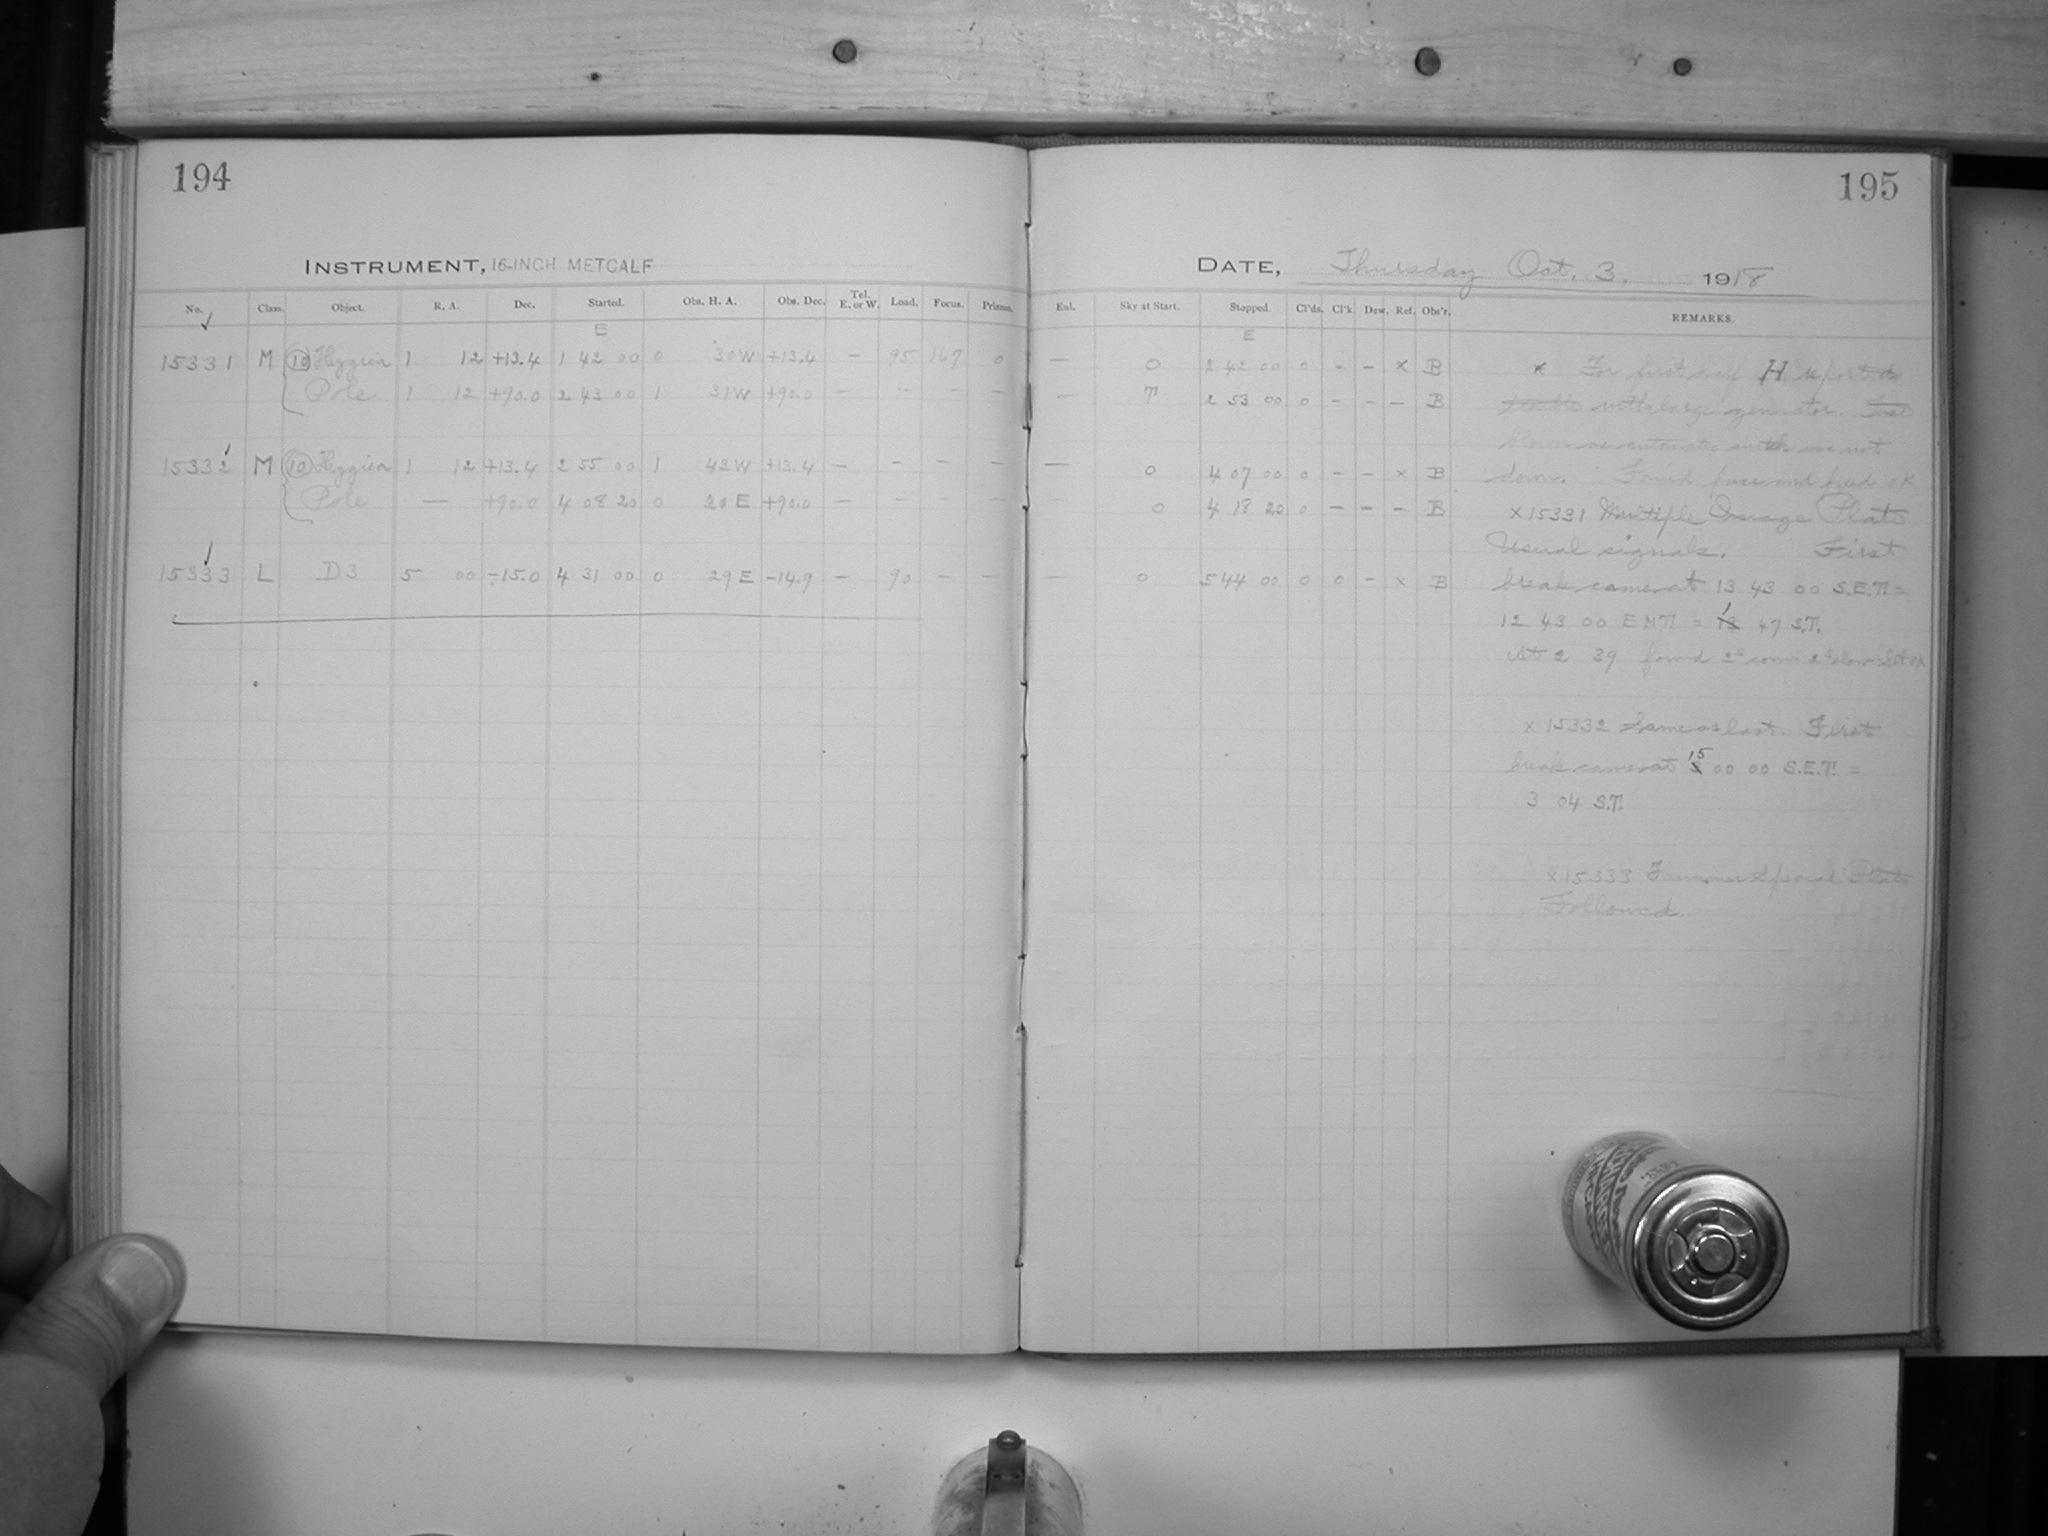 194
INSTRUMENT, 16-INCH METCALF
No. Class. Object. R. A. Dec. Started. Obs. H. A. Obs. Dec. Tel. E. or W. Load. Focus. Prisms.
E
15331 M (10) Hygiea 1 12 +13.4 1 42 00 0 30 W +13.4 — 95 167 0
Pole 1 12 +90.0 2 43 00 1 31 W +90.0 — — — —
15332 M (10) Hygiea 1 12 +13.4 2 55 00 1 43 W +13.4 — — — —
Pole — +90.0 4 08 20 0 20 E +90.0 — — — —
15333 L D3 5 00 -15.0 4 31 00 0 29 E -14.9 — 90 — —
195
DATE, Thursday Oct. 3, 1918
Enl. Sky at Start. Stopped. Cl'ds. Cl'k. Dew. Ref. Obs'r. REMARKS.
E
— 0 2 42 00 0 - - x B
— T 2 53 00 0 - - - B
— 0 4 07 00 0 - - x B
0 4 18 20 0 - - - B
— 0 5 44 00 0 0 - x B
x For first half H. reported
trouble with large generator. Fuse
blown as automatic switch was not
down. Found fuse and fixed OK
x 15331 Multiple Image Plate
Usual signals. First
break came at 13 43 00 S.E.T. =
12 43 00 E.M.T. = 1 47 S.T.
At 2 39 found
x 15332 Same as last. First
break came at 15 00 00 S.E.T. =
3 04 S.T.
x 15333 Special Plate
Followed